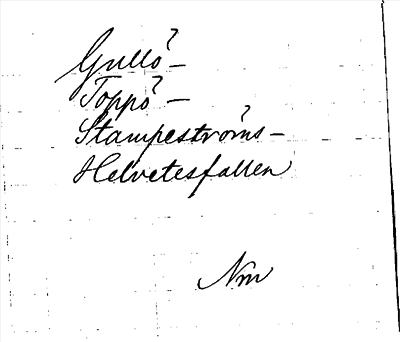 Gullö-
Toppö-
Stampeströms-
Helvetesfallen